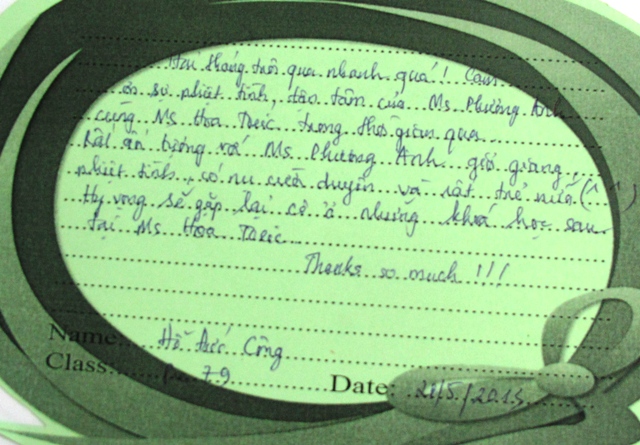 Hai tháng trôi qua nhanh quá! Cảm
ơn sự nhiệt tình, tận tâm của Ms Phương Anh
cùng Ms Hoa Toeic trong thời gian qua...
Rất ấn tượng với Ms Phương Anh giỏi giang,
nhiệt tình, có nụ cười duyên và rất trẻ nữa (^^)
Hy vọng sẽ gặp lại cô ở những khoá học sau
tại Ms Hoa Toeic...
Thanks so much !!!
Name: Hồ Đức Công
Class: 79
Date: 21/5/2015